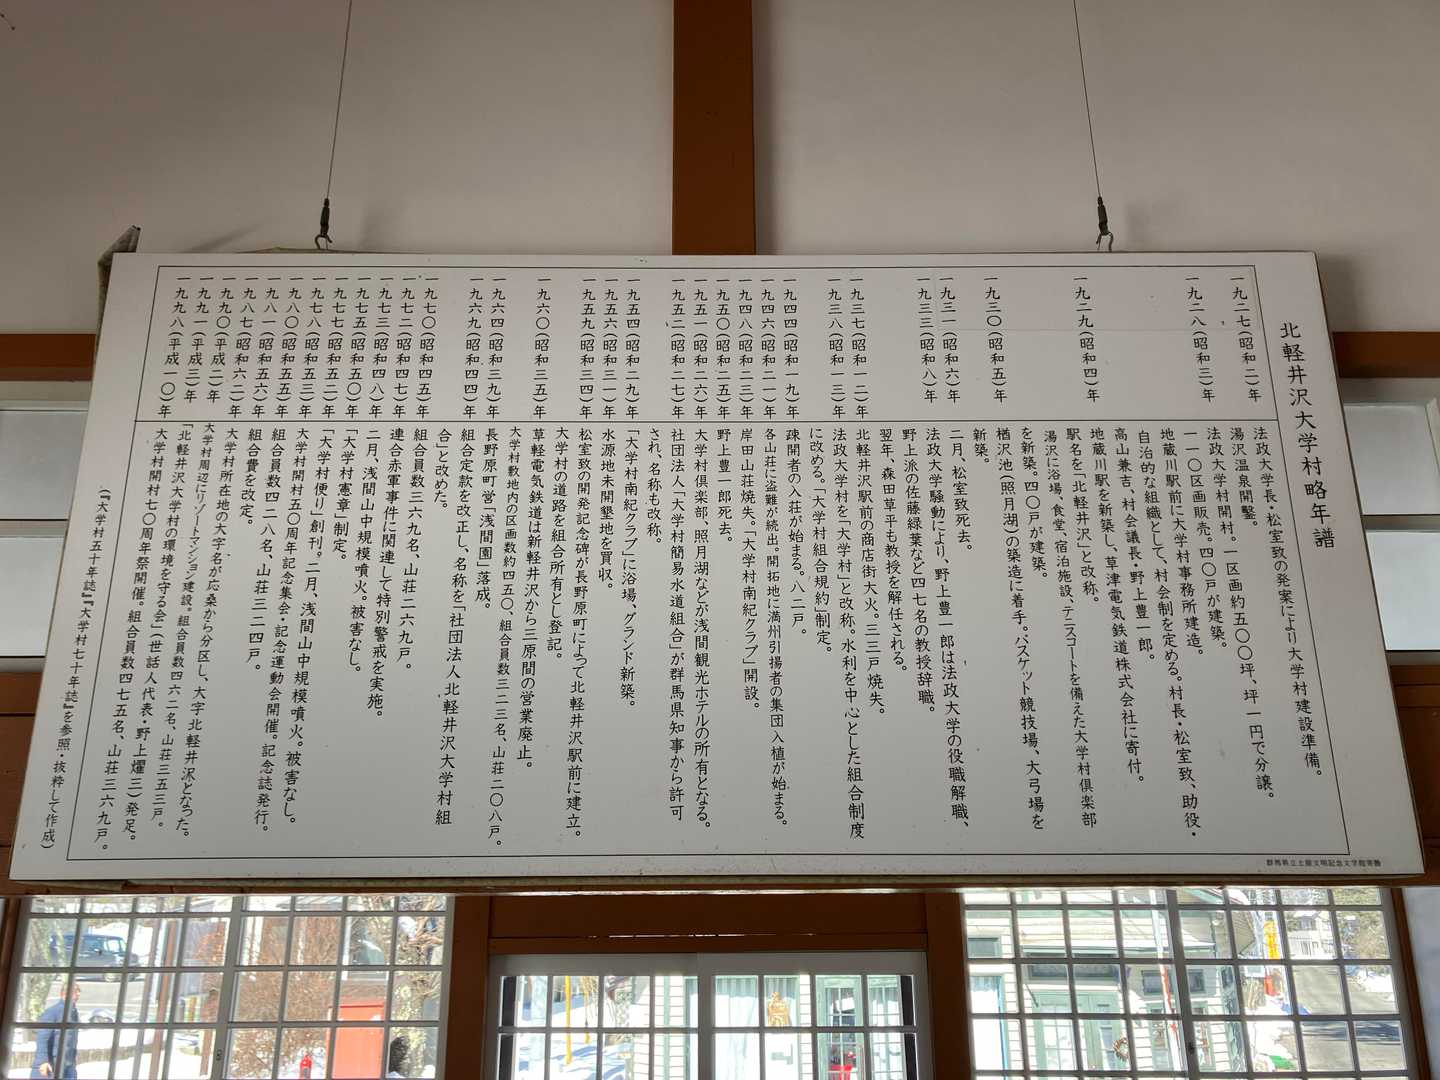 北軽井沢大学村略年譜
一九二七(昭和二)年
法政大学長・松室致の発案により大学村建設準備。
湯沢温泉開鑿。
一九二八(昭和三)年
法政大学村開村。一区画約五〇〇坪、坪一円で分譲。
一一〇区画販売。四〇戸が建築。
地蔵川駅前に大学村事務所建造。
自治的な組織として、村会制を定める。村長・松室致、助役・
高山兼吉、村会議長・野上豊一郎。
一九二九(昭和四)年
地蔵川駅を新築し、草津電気鉄道株式会社に寄付。
駅名を「北軽井沢」と改称。
湯沢に浴場、食堂、宿泊施設、テニスコートを備えた大学村倶楽部
を新築。四〇戸が建築。
一九三〇(昭和五)年
楢沢池(照月湖)の築造に着手。バスケット競技場、大弓場を
新築。
一九三一(昭和六)年
二月、松室致死去。
一九三三(昭和八)年
法政大学騒動により、野上豊一郎は法政大学の役職解職、
野上派の佐藤緑葉など四七名の教授辞職。
翌年、森田草平も教授を解任される。
一九三七(昭和一二)年
北軽井沢駅前の商店街大火。三三戸焼失。
一九三八(昭和一三)年
法政大学村を「大学村」と改称。水利を中心とした組合制度
に改める。「大学村組合規約」制定。
一九四四(昭和一九)年
疎開者の入荘が始まる。八二戸。
一九四六(昭和二一)年
各山荘に盗難が続出。開拓地に満州引揚者の集団入植が始まる。
一九四八(昭和二三)年
岸田山荘焼失。「大学村南紀クラブ」開設。
一九五〇(昭和二五)年
野上豊一郎死去。
一九五一(昭和二六)年
大学村倶楽部、照月湖などが浅間観光ホテルの所有となる。
一九五二(昭和二七)年
社団法人「大学村簡易水道組合」が群馬県知事から許可
され、名称も改称。
一九五四(昭和二九)年
「大学村南紀クラブ」に浴場、グランド新築。
一九五六(昭和三一)年
水源地未開墾地を買収。
一九五九(昭和三四)年
松室致の開発記念碑が長野原町によって北軽井沢駅前に建立。
大学村の道路を組合所有とし登記。
一九六〇(昭和三五)年
草軽電気鉄道は新軽井沢から三原間の営業廃止。
大学村敷地内の区画数約四五〇、組合員数三一三名、山荘二〇八戸。
一九六四(昭和三九)年
長野原町営「浅間園」落成。
一九六九(昭和四四)年
組合定款を改正し、名称を「社団法人北軽井沢大学村組
合」と改めた。
一九七〇(昭和四五)年
組合員数三六九名、山荘二六九戸。
一九七二(昭和四七)年
連合赤軍事件に関連して特別警戒を実施。
一九七三(昭和四八)年
二月、浅間山中規模噴火。被害なし。
一九七五(昭和五〇)年
「大学村憲章」制定。
一九七七(昭和五二)年
「大学村便り」創刊。二月、浅間山中規模噴火。被害なし。
一九七八(昭和五三)年
大学村開村五〇周年記念集会・記念運動会開催。記念誌発行。
一九八〇(昭和五五)年
組合員数四二八名、山荘三二四戸。
一九八一(昭和五六)年
組合費を改定。
一九八七(昭和六二)年
大学村所在地の大字名が応桑から分区し、大字北軽井沢となった。
一九九〇(平成二)年
大学村周辺にリゾートマンション建設。組合員数四六二名、山荘三五三戸。
一九九一(平成三)年
「北軽井沢大学村の環境を守る会」(世話人代表・野上燿三)発足。
一九九八(平成一〇)年
大学村開村七〇周年祭開催。組合員数四七五名、山荘三六九戸。
(『大学村五十年誌』『大学村七十年誌』を参照・抜粋して作成)
群馬県立土屋文明記念文学館寄贈